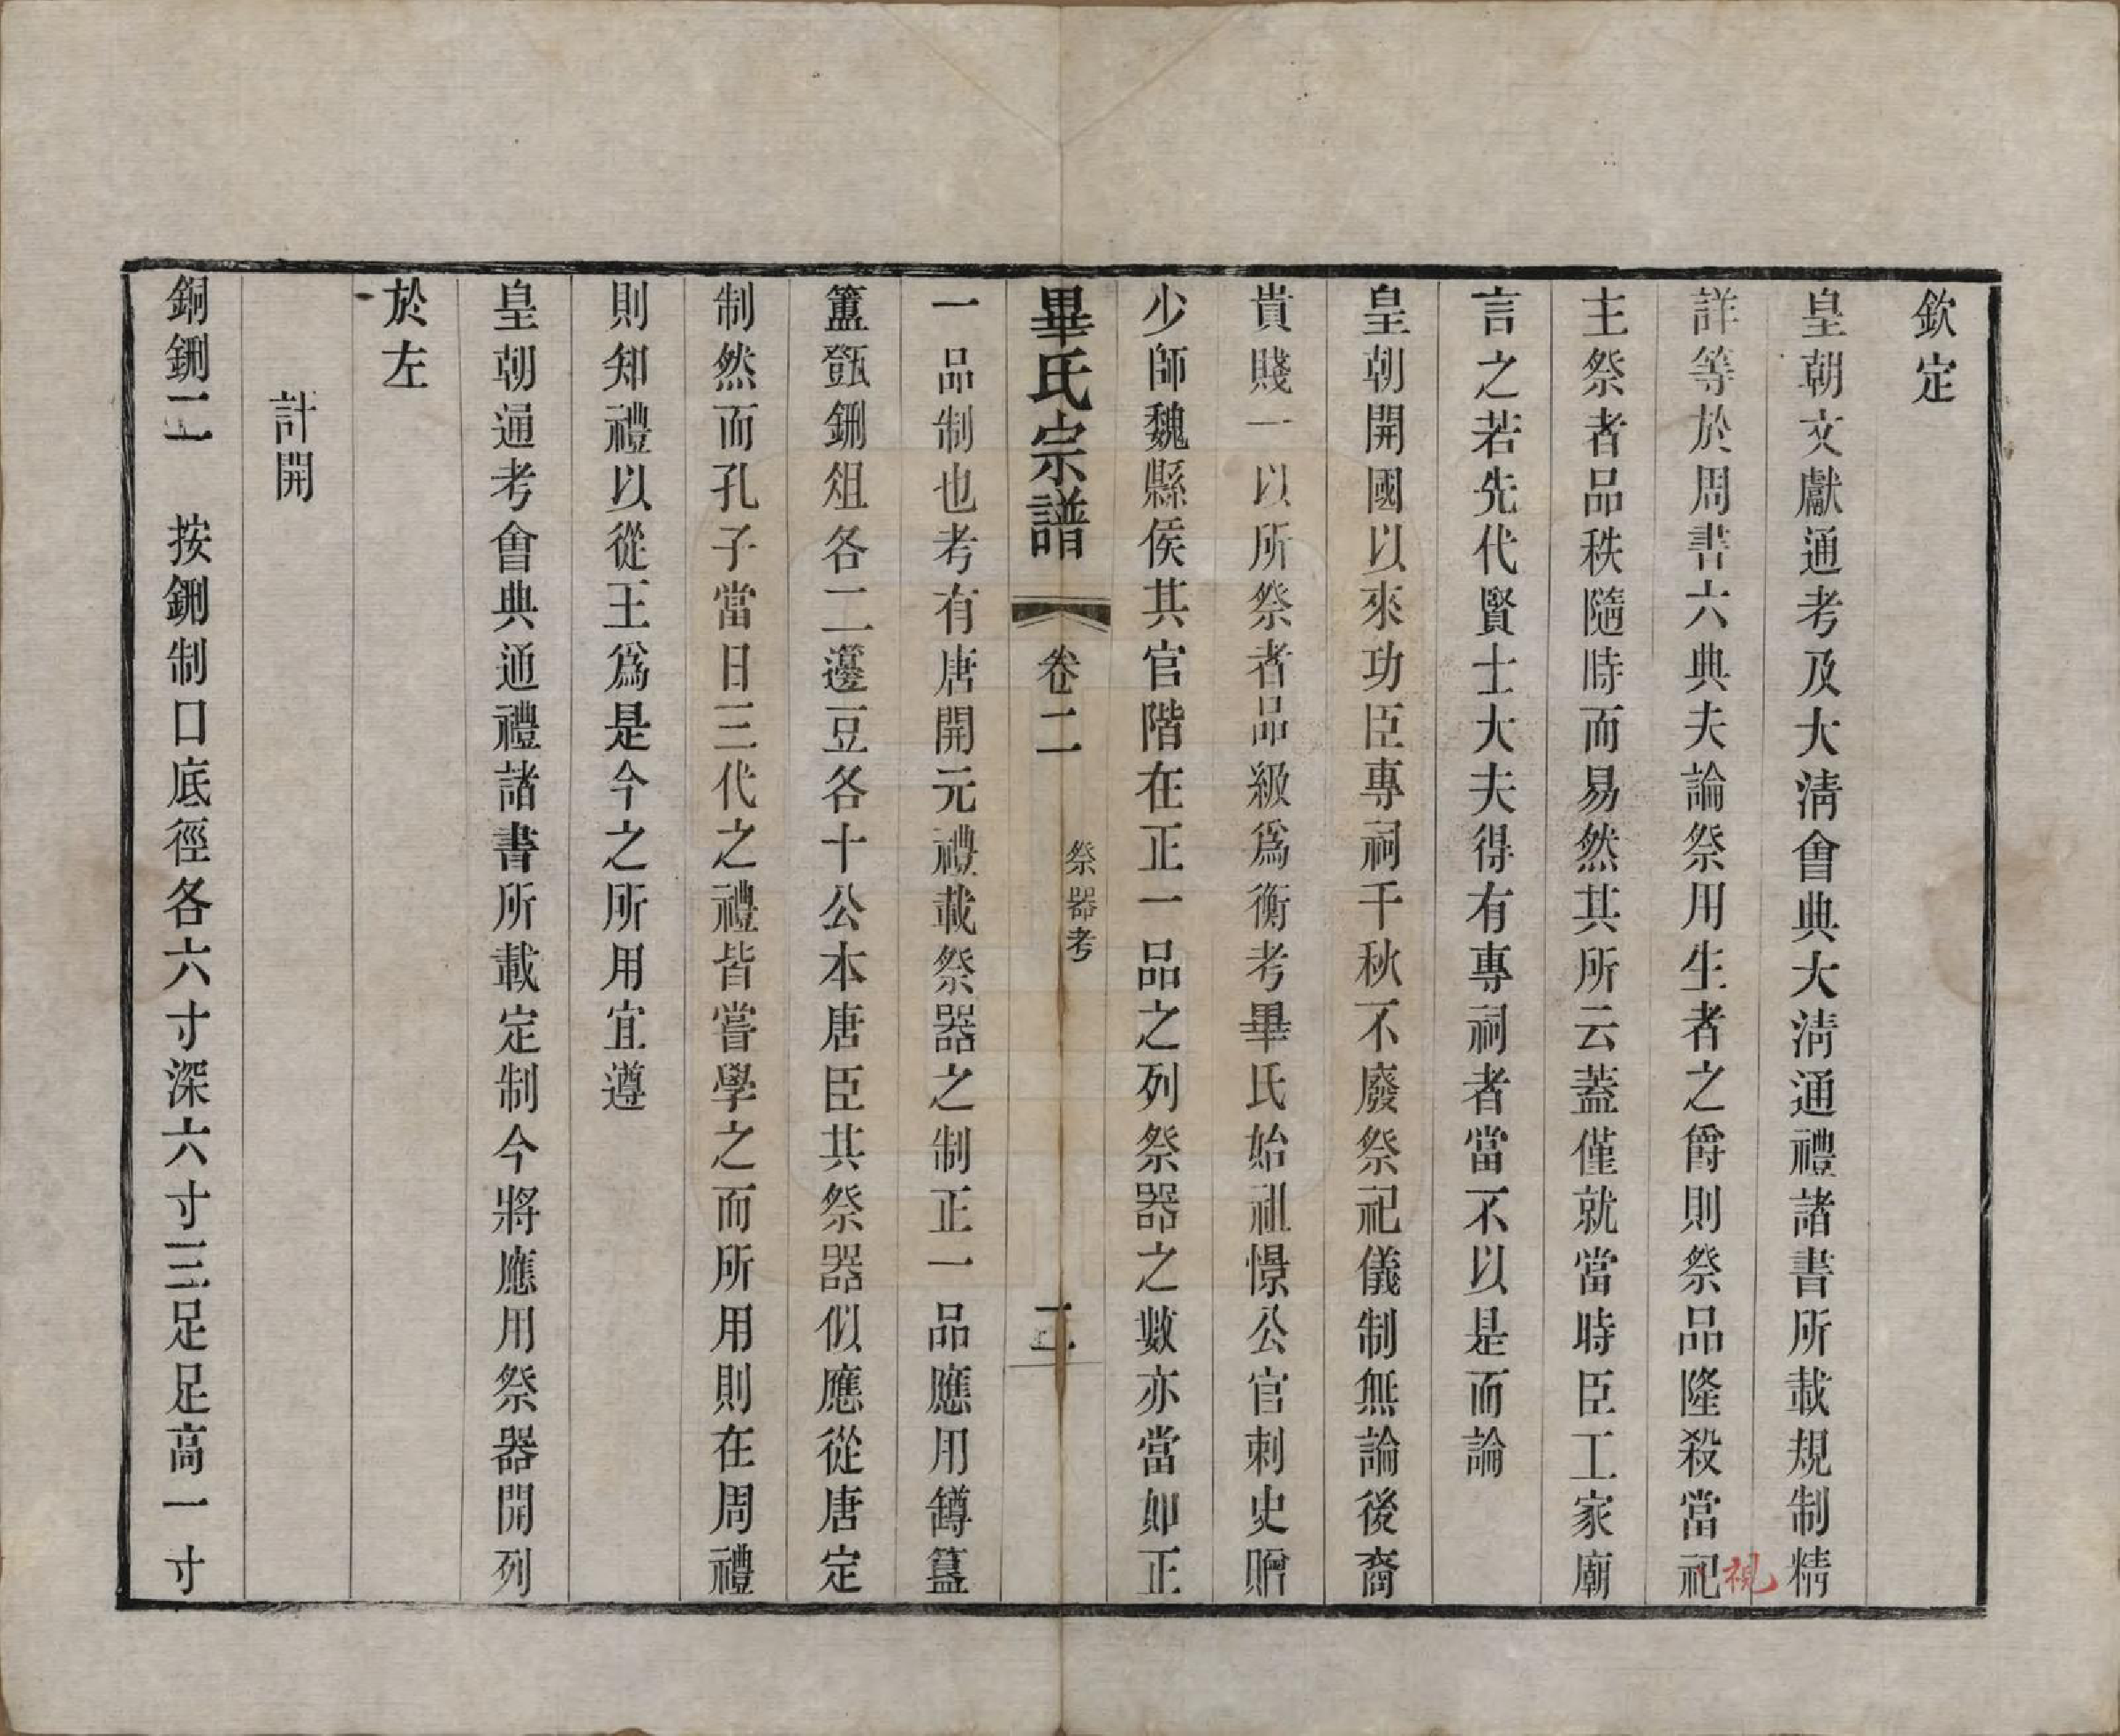 欽定
皇朝文獻通考及大淸會典大淸通禮諸書所載規制精
詳等於周書六典夫論祭用生者之爵則祭品隆殺當祀
視
主祭者品秩隨時而易然其所云蓋僅就當時臣工家廟
言之若先代賢士大夫得有專祠者當不以是而論
皇朝開國以來功臣專祠千秋不廢祭祀儀制無論後裔
貴賤一以所祭者品級爲衡考畢氏始祖憬公官刺史贈
少師魏縣侯其官階在正一品之列祭器之數亦當如正
畢氏宗譜 卷二 祭器考
一品制也考有唐開元禮載祭器之制正一品應用罇簋
簠㽅鉶俎各二籩豆各十公本唐臣其祭器似應從唐定
制然而孔子當日三代之禮皆嘗學之而所用則在周禮
則知禮以從王爲是今之所用宜遵
皇朝通考會典通禮諸書所載定制今將應用祭器開列
於左
計開
銅鉶二 按鉶制口底徑各六寸深六寸三足足高一寸